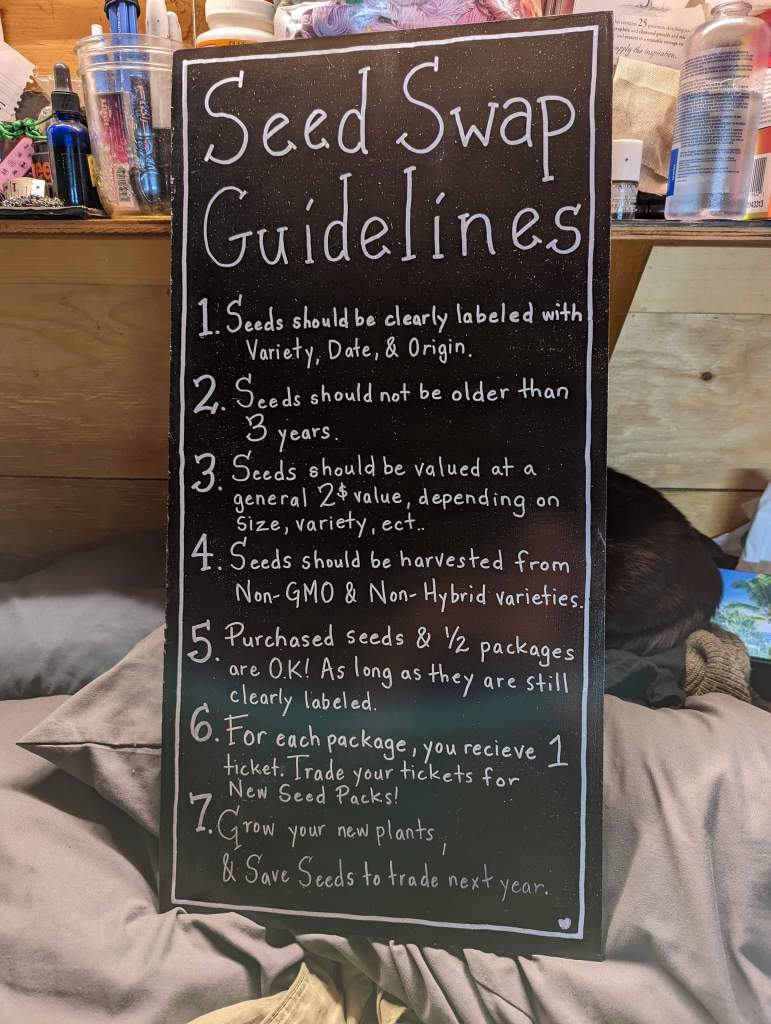 Seed Swap
Guidelines
1. Seeds should be clearly labeled with
Variety, Date, & Origin.
2. Seeds should not be older than
3 years.
3. Seeds should be valued at a
general 2$ value, depending on
size, variety, ect..
4. Seeds should be harvested from
Non-GMO & Non-Hybrid varieties.
5. Purchased seeds & 1/2 packages
are O.K! As long as they are still
clearly labeled.
6. For each package, you recieve 1
ticket. Trade your tickets for
New Seed Packs!
7. Grow your new plants,
& Save Seeds to trade next year.